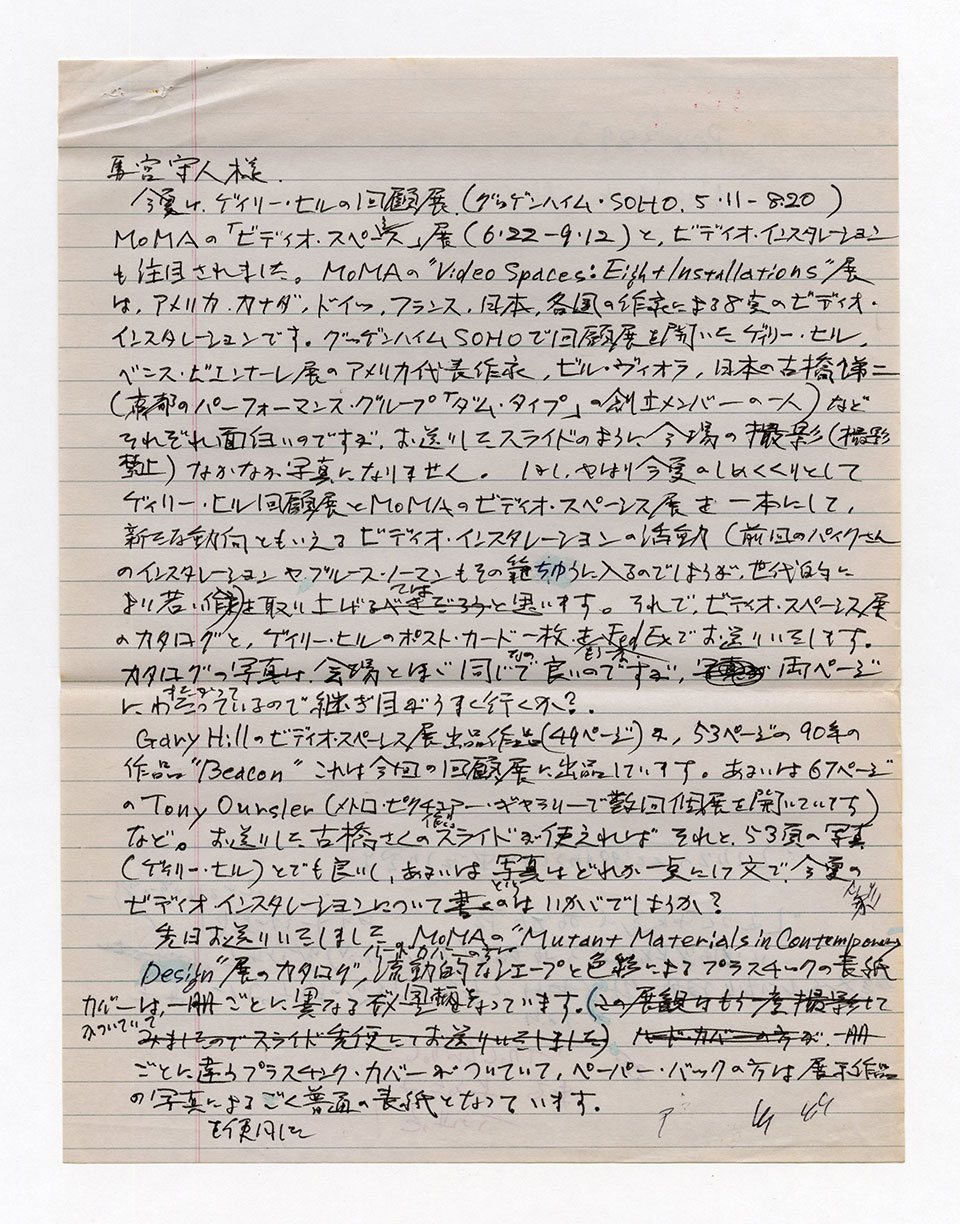 馬宮守人様.
今夏は、ゲイリー・ヒルの回顧展、(グッゲンハイム・SOHO. 5・11-8.20)
MoMAの「ビディオ・スペース」展(6・22-9・12)と、ビディオ・インスタレーション
も注目されました。MoMAの"Video Spaces: Eight Installations"展
は、アメリカ、カナダ、ドイツ、フランス、日本、各国の作家による8室のビディオ・
インスタレーションです。グッゲンハイムSOHOで回顧展を開いたゲイリー・ヒル、
ベニス・ビエンナーレ展のアメリカ代表作家、ビル・ヴィオラ、日本の古橋悌二
(京都のパーフォーマンス・グループ「ダム・タイプ」の創立メンバーの一人)など
それぞれ面白いのですが、お送りしたスライドのように会場の撮影(撮影
禁止)なかなか写真になりません。しかし、やはり今夏のしめくくりとして
ゲイリー・ヒル回顧展とMoMAのビディオ・スペース展を一本にして、
新たな動向ともいえるビディオ・インスタレーションの活動(前回のパイクさん
のインスタレーションや、ブルース・ノーマンもその範ちゅうに入るのでしょうが、世代的に
より若い)は取り上げるべきでは と思います。それで、ビディオ・スペース展
のカタログと、ゲイリー・ヒルのポスト・カード一枚をFedExでお送りいたします。
カタログの写真は、会場とほぼ同じなので良いのですが、両ページ
にまたがっているので継ぎ目がうまく行くか?.
Gary Hillのビディオ・スペース展出品作品(49ページ)か、53ページの90年の
作品"Beacon" これは今回の回顧展に出品しています。あるいは67ページ
のTony Oursler(メトロ・ピクチュアー・ギャラリーで数回個展を開いています)
など。お送りした古橋さんのスライドが使えれば それと、53頁の写真
(ゲイリー・ヒル)とでも良いし、あるいは写真はどれか一点にして文で、今夏の
ビディオ・インスタレーションについて書くというのはいかがでしょうか?
先日お送りいたしました MoMAの"Mutant Materials in Contemporary
Design"展のカタログ、流動的なシェープと色彩によるプラスチックの表紙
カバーは、一冊ごとに異なる図柄となっています。(この展観はもう一度撮影して
みましたのでスライド先便にてお送りいたしました) ハード・カバーの方が、一冊
ごとに違うプラスチック・カバーがついていて、ペーパー・バックの方は展示作品
の写真によるごく普通の表紙となっています。
を使用した